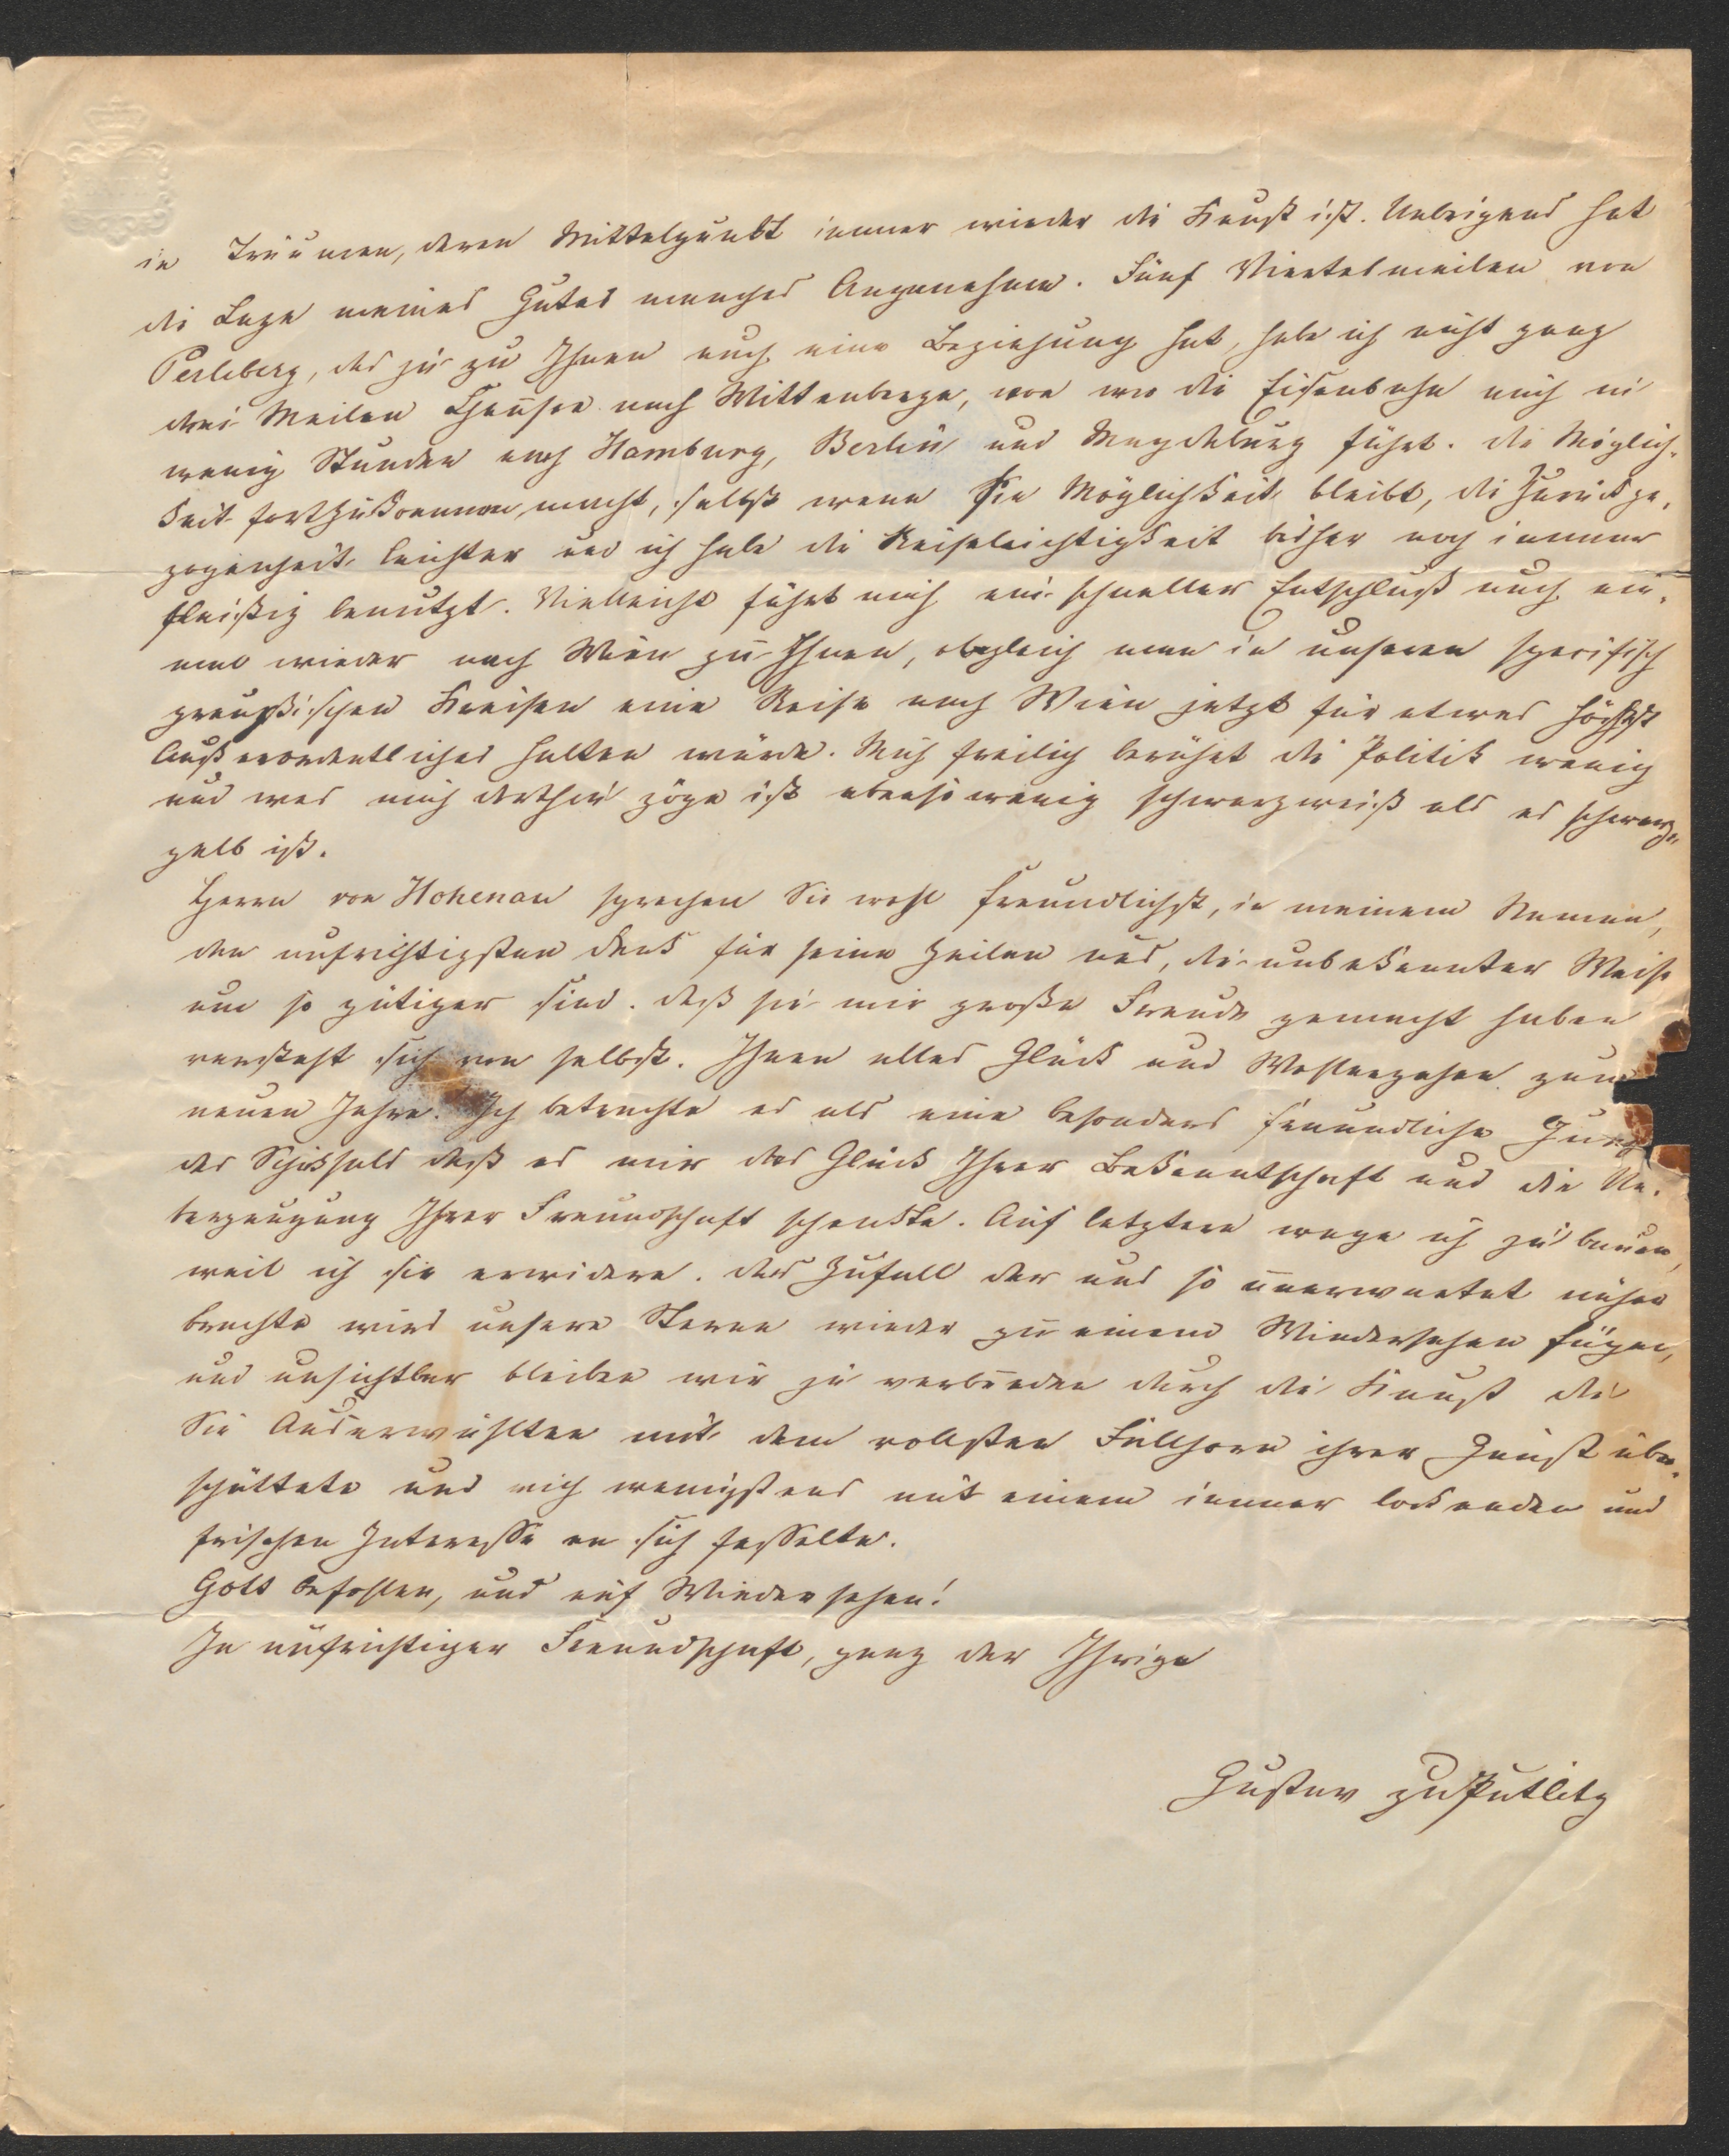 in Träumen, deren Mittelpunkt immer wieder die Kunst ist. Uebrigens hat
die Lage meines Gutes manches Angenehme. Fünf Viertelmeilen von
Perleberg, das ja zu Ihnen auch eine Beziehung hat, habe ich nicht ganz
drei Meilen Chaussee nach Wittenberge, von wo die Eisenbahn mich in
wenig Stunden nach Hamburg, Berlin und Magdeburg führt. Die Möglich-
keit fortzukommen, macht, selbst wenn sie Möglichkeit bleibt, die Zurückge-
zogenheit leichter und ich habe die Reiseleichtigkeit bisher noch immer
fleißig benutzt. Vielleicht führt mich ein schneller Entschluß auch ein-
mal wieder nach Wien zu Ihnen, obgleich man in unseren specifisch
preußischen Kreisen eine Reise nach Wien jetzt für etwas höchst
Außerordentliches halten würde. Mich freilich berührt die Politik wenig
und was mich dorthin zöge ist ebenso wenig schwarzweiß als es schwarz-
gelb ist.
Herrn von Hohenau sprechen Sie wohl freundlichst, in meinem Namen,
den aufrichtigsten Dank für seine Zeilen aus, die unbekannter Weise
um so gütiger sind. Daß sie mir große Freude gemacht haben
versteht sich von selbst. Ihnen alles Glück und Wohlergehen zum
neuen Jahre. Ich betrachte es als eine besonders freundliche Gunst
des Schicksals daß es mir das Glück Ihrer Bekanntschaft und die Ue-
berzeugung Ihrer Freundschaft schenkte. Auf letztere wage ich zu bauen,
weil ich sie erwidere. Der Zufall der uns so unerwartet näher
brachte wird unsere Sterne wieder zu einem Wiedersehen fügen,
und unsichtbar bleiben wir ja verbunden durch die Kunst die
Sie Auserwählten mit dem vollsten Füllhorn ihrer Gunst über-
schüttete und mich wenigstens mit einem immer lockenden und
frischen Interesse an sich fesselte.
Gott befohlen, und auf Wiedersehen!
In aufrichtiger Freundschaft, ganz der Ihrige
Gustav zu Putlitz